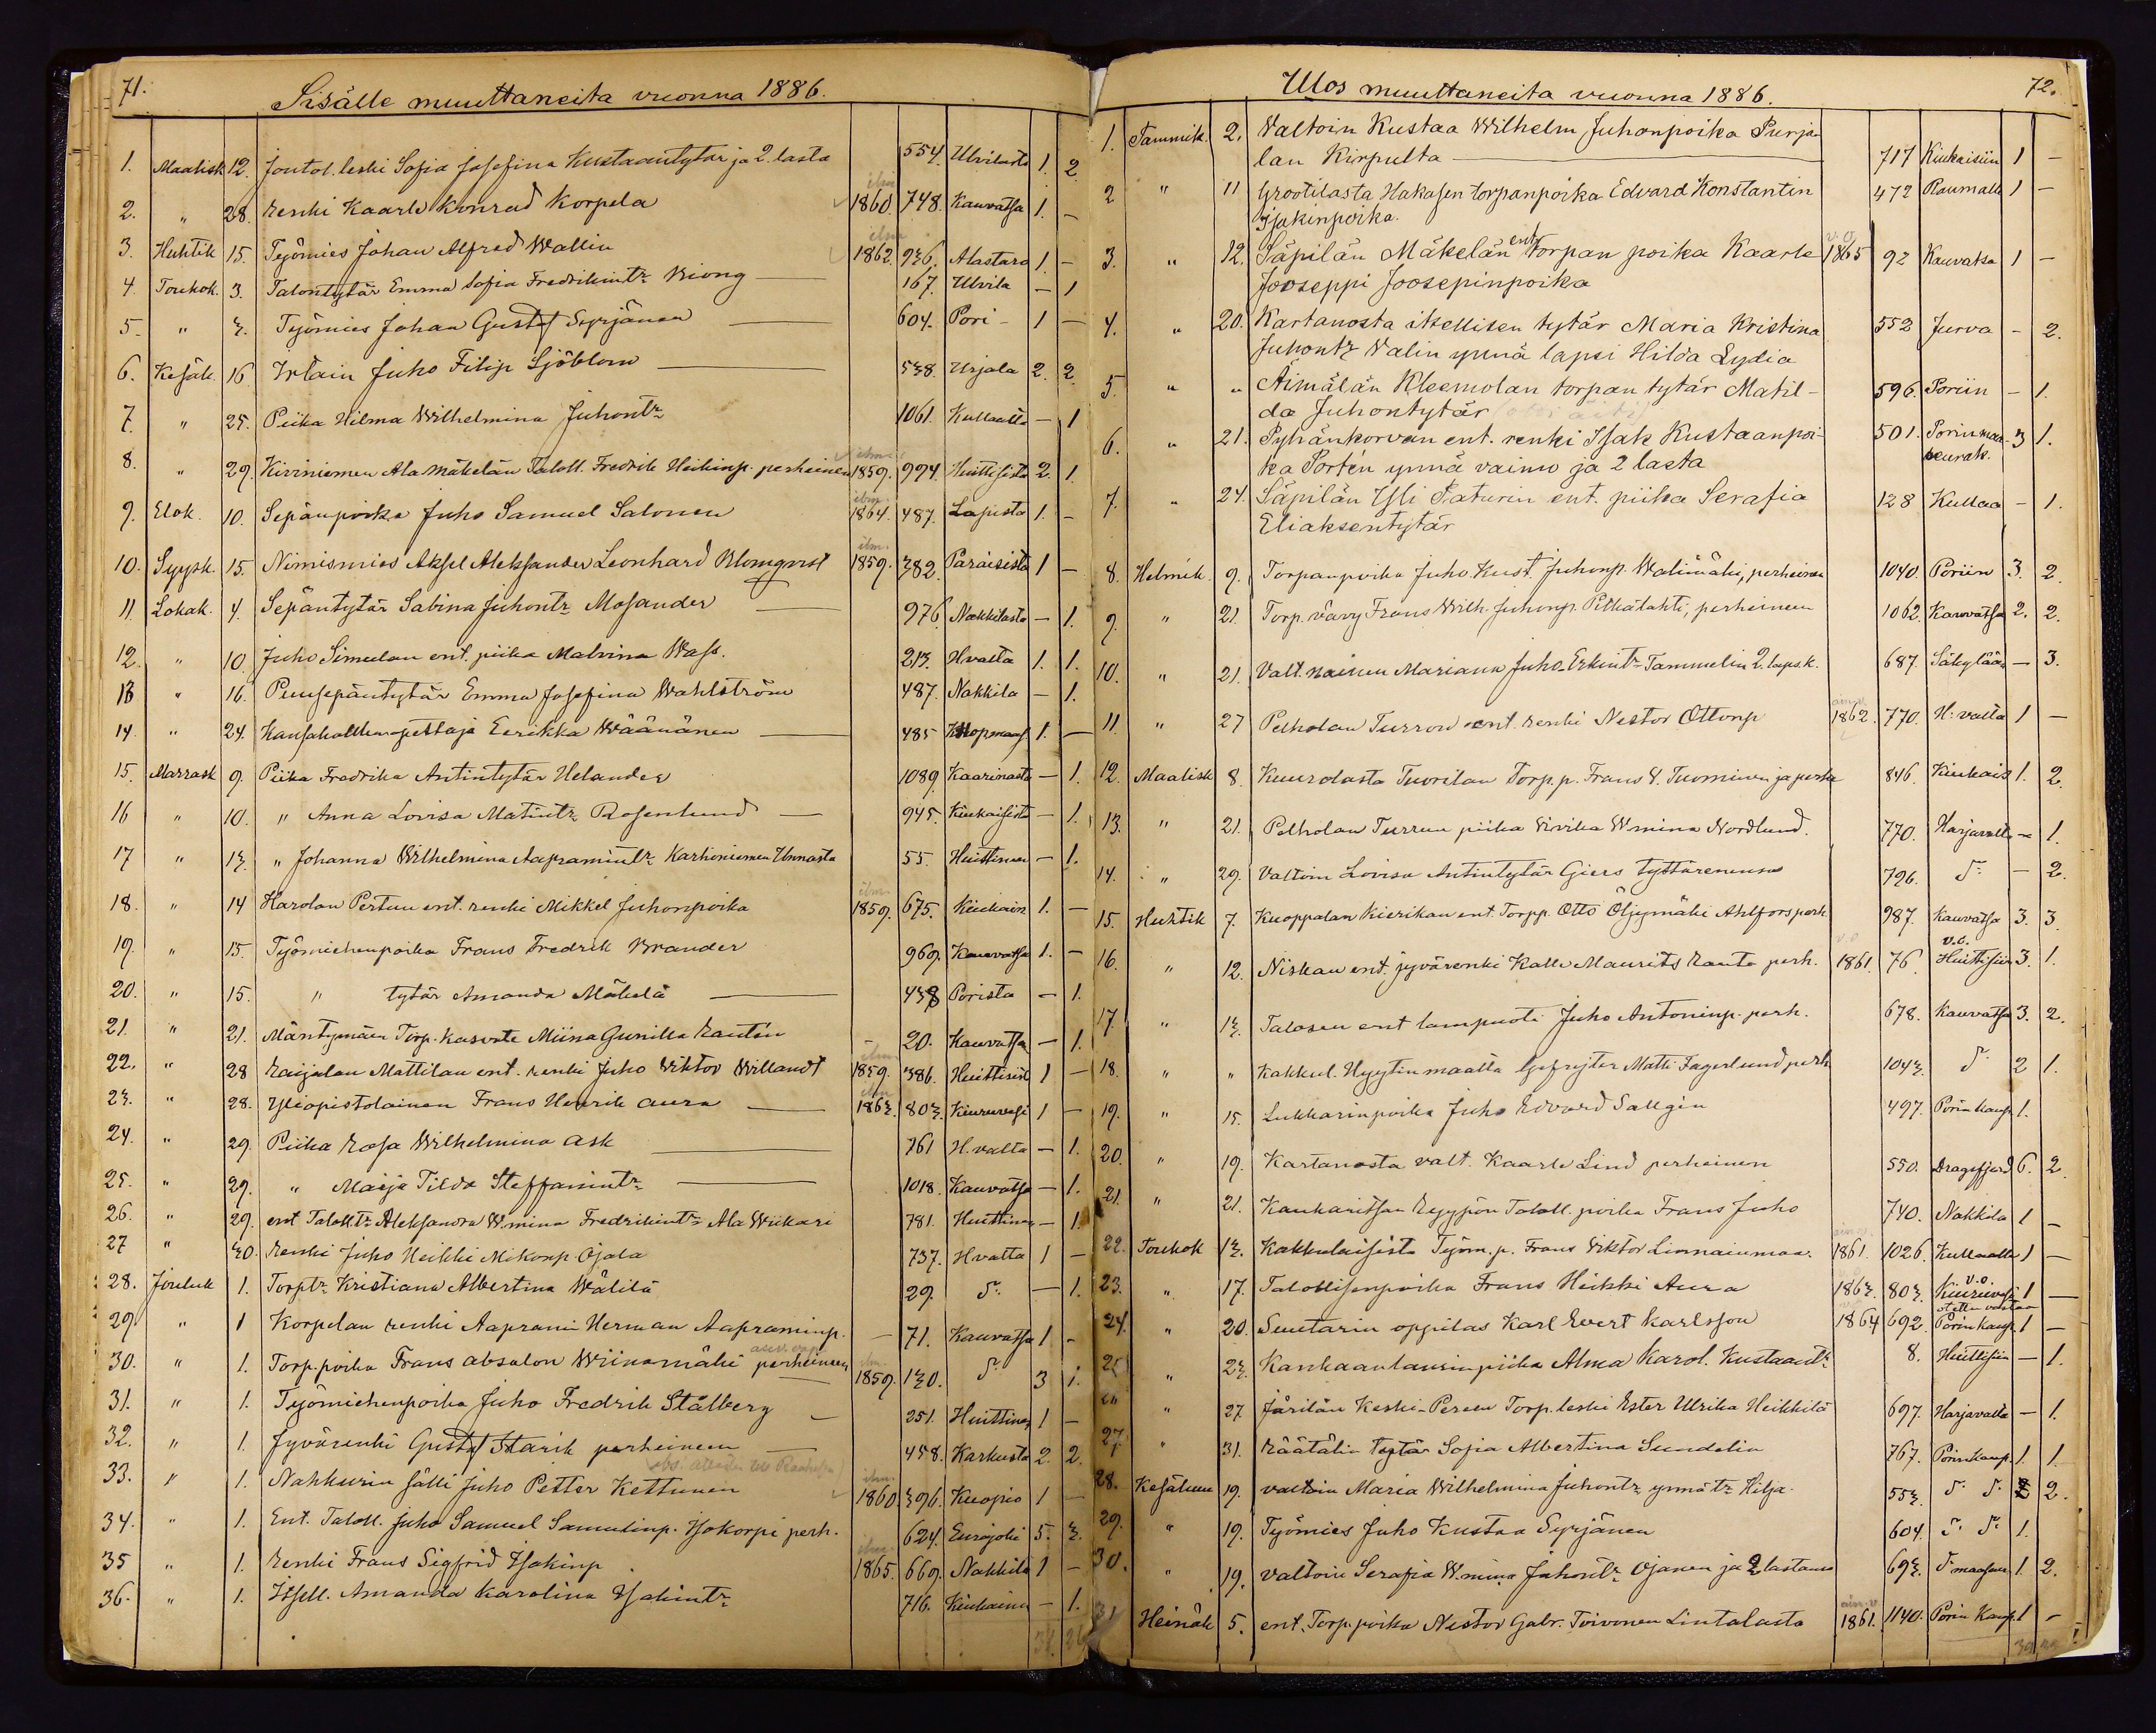 71.
Sisälle muuttaneita vuonna 1886.
1. Maalisk 12. Joutol. leski Sofia Josefina Kustaantytär ja 2. lasta 554. Ulvilasta 1. 2.
2. " 28. Renki Kaarle Konrad Korpela ilm 1860. 748. Kauvatsa 1. -
3. Huhtik 15. Työmies Johan Alfred Wallin ilm 1862. 936. Alastaro 1. -
4. Toukok. 3. Talontytär Emma Sofia Fredrikintr Kiong 167. Ulvila - 1
5. " 3. Työmies Johan Gustaf Syrjänen 604. Pori 1 -
6. Kesäk. 16. Itälain Juho Filip Sjöblom 538. Urjala 2. 2.
7. " 25. Piika Hilma Wilhelmina Juhontr 1061. Kullaalta - 1
8. " 29. Kiviniemen Ala Mäkelän Taloll. Fredrik Heikinp. perheineen 1859. 994. Huittisista 2. 1.
9. Elok. 10. Sepänpoika Juho Samuel Salonen ilm. 1864. 487. Lapista 1. -
10. Syysk. 15. Nimismies Aksel Aleksander Leonhard Blomqvist ilm. 1859. 382. Paraisista 1 -
11. Lokak. 4. Sepäntytär Sabina Juhontr Mosander 976. Nakkilasta - 1.
12. " 10. Juho Simulan ent. piika Malvina Wass. 213. H.valta 1. 1.
13 " 16. Puusepäntytär Emma Josefina Wahlström 487. Nakkila - 1.
14. " 24. Kansakoulunopettaja Eerikka Wäänänen 485 1. -
15. Marrask 9. Piika Fredrika Antintytär Helander 1089. Kaarinasta - 1.
16 " 10. " Anna Lovisa Matintr Rosenlund 945. Kiukaisista - 1.
17 " 13. " Johanna Wilhelmina Aapramintr Karhiniemen Unnasta 55. Huittinen - 1.
18. " 14 Harolan Pertun ent. renki Mikkel Juhonpoika ilm. 1859. 675. Kiukain 1. -
19. " 15. Työmiehenpoika Frans Fredrik Brander 969. Kauvatsa 1. -
20. " 15. " tytär Amanda Mäkelä 438 Porista - 1.
21. " 21. Mäntymäen Torp. kasvate Miina Gunilla Rautin 20. Kauvatsa - 1.
22. " 28 Raijalan Mattilan ent. renki Juho Viktor Willandt ilm 1859. 386. Huittisist 1 -
23. " 28. Yliopistolainen Frans Henrik Aura 1863. 803. Kiuruvesi 1 -
24. " 29. Piika Rosa Wilhelmina Ask 761 H.valta - 1.
25. " 29. " Maija Tilda Steffanintr 1018. Kauvatsa - 1.
26. " 29. ent Talolltr. Aleksandra W.mina Fredrikintr Ala Wiikari 781. Huittinen - 1.
27 " 30. Renki Juho Heikki Mikonp. Ojala 737. H.valta 1 -
28. Jouluk 1. Torptr. Kristiana Albertina Wälilä 29. d:o - 1.
29. " 1 Korpelan renki Aaprami Herman Aapraminp. - 71. Kauvatsa 1 -
30. " 1. Torp. poika Frans Absalon Wiinamäki perheineen ilm. 1859. 130. d:o 3 1.
31. " 1. Työmiehenpoika Juho Fredrik Stålberg 251. Huittinen 1 -
32. " 1. Jyvärenki Gustaf Starik perheineen 458. Karkusta 2. 2.
33. " 1. Nahkurin sälli Juho Petter Kettunen ilm. 1860. 396. Kuopio 1 -
34. " 1. Ent. Taloll. Juho Samuel Samulinp. Isokorpi perh. 624. Eurajoki 5. 3.
35 " 1. Renki Frans Sigfrid Isakinp. ilm. 1865. 669. Nakkila 1 -
36. " 1. Itsell. Amanda Karolina Isakintr 716. Kiukainen - 1.
72.
Ulos muuttaneita vuonna 1886.
1. Tammik. 2. Valtoin Kustaa Wilhelm Juhonpoika Purja-
lan Kirpulta 717 Kiukaisiin 1 -
2 " 11 Grootilasta Hakasen torpanpoika Edvard Konstantin 472 Raumalle 1 -
Isakinpoika.
3. " 12. Säpilän Mäkelän ent torpan poika Kaarle v. o 1865 92 Kauvatsa 1 -
Jooseppi Joosepinpoika
4. " 20. Kartanosta itsellisen tytär Maria Kristina 552 Jurva - 2.
Juhontr Valin ynnä lapsi Hilda Lydia
5. " " Äimälän Kleemolan torpan tytär Matil- 596. Poriin - 1.
da Juhontytär
6. " 21. Pyhänkorvan ent. renki Isak Kustaanpoi- 501. Porinmaa- 3 1.
ka Portén ynnä vaimo ja 2 lasta seurak.
7. " 24. Säpilän Yli Saturin ent. piika Serafia 128 Kullaa - 1.
Eliaksentytär
8. Helmik. 9. Torpanpoika Juho Kust. Juhonp. Walimäki, perheineen 1040. Poriin 3. 2.
9. " 21. Torp. vävy Frans Wilh. Juhonp. Pitkälahti, perheineen 1062. Kauvatsa 2. 2.
10. " 21. Valt. nainen Mariana Juho-Erkintr Tammelin 2. laps. k. 687. Säkylään - 3.
11. " 27 Pelholan Turron ent. renki Nestor Ottonp 1862. 770. H:valta 1 -
12. Maalisk 8. Kuurolasta Tuorilan Torp. p. Frans V. Tuominen ja perhe 846. Kiukais 1. 2.
13. " 21. Pelholan Turrun piika Viivika W.mina Nordlund. 770. Harjavalta - 1.
14. " 29. Valtoin Lovisa Antintytär Giers tyttärenensä 796. d:o - 2.
15. Huhtik 7. Kuoppalan Kierikan ent. Torpp. Otto Öljymäki Ahlfors perh. 987. Kauvatsa 3. 3.
16. " 12. Niskan ent. jyvärenki Kalle Maurits Ranta perh. v.o 1861. 76. v.o. Huittisiin 3. 1.
17. " 13. Talosen ent lampuoti Juho Antoninp. perh. 678. Kauvatsa 3. 2.
18. " " Kakkul. Hyytin maalta Matti Fagerlund perh. 1043. d:o 2 1.
19. " 15. Lukkarinpoika Juho Edvard Sallgin 497. Porin kaup 1.
20. " 19. Kartanosta valt. Kaarle Lind perheinen 550. Dragsfjerd 6. 2
21. " 21. Kankaritsan Ryypön Taloll. poika Frans Juho 740. Nakkila 1 -
22. Toukok 13. Kakkulaisista Työm. p. Frans Viktor Linnainmaa. 1861. 1026. Kullaalle 1 -
23. " 17. Talollisenpoika Frans Heikki Aura 1863. 803. v.o. Kiuruvesi 1 -
24. " 20. Suutarin oppilas Karl Evert Karlsson 1864 692. Porin kaup. 1 -
25 " 23. Kankaanlaurin piika Alma Karol. Kustaantr 8. Huittisiin - 1.
" 27. Järilän Keski-Pereen Torp. leski Ester Ulrika Heikkilä 697. Harjavalta - 1.
27. " 31. Räätälin tytär Sofia Albertina Sundelin 767. Porin kaup. 1. 1.
28. Kesäkuu 19. valtoin Maria Wilhelmina Juhontr ynnä tr Hilja. 553. d:o d:o 2.
29. " 19. Työmies Juho Kustaa Syrjänen 604. d:o d:o 1.
30. " 19. valtoin Serafia W.mina Juhontr Ojanen ja 2 lastansa 693. d:o maaseur. 1. 2.
31 Heinäk 5. ent. Torp. poika Nestor Gabr. Toivonen Lintalasta 1861. 1140. Porin Kaup. 1 -